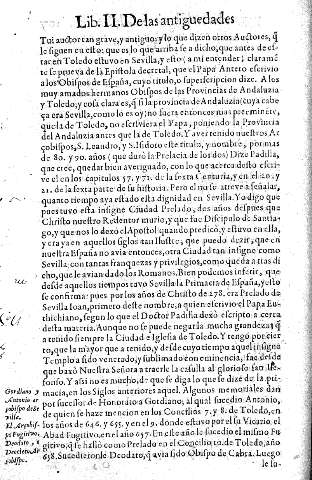 Lib. II. De las antiguedades
Tui auctor tan grave, y antiguo, y lo que dizen otros Auctores, q̃
le siguen en esto: que es lo que arriba se a dicho, que antes de es-
tar en Toledo estuvo en Sevilla, y esto (a mi entender) claramē
te se prueva de la Epistola decretal, que el Papa Antero escrivio
a los Obispos de España, cuyo titulo, o superscripcion dize. A los
muy amados hermanos Obispos de las Provincias de Andaluzia
y Toledo, y cosa clara es, q̃ si la provincia de Andaluzia (cuya cabe
ça era Sevilla, como lo es oy) no fuera entonces mas preeminēte,
que la de Toledo, no escriviera el Papa, poniendo la Provincia
del Andaluzia antes que la de Toledo. Y aver tenido nuestros Ar
çobispos, S. Leandro, y S. Isidoro este titulo, y notable, por mas
de 80. y 90. años (que duró la Prelacia de los dos) Dize Padilla,
que cree, quedar bien averiguado, con lo que acerca desto escri-
ve el en los capitulos 57. y 72. de la sexta Centuria, y en el 20. y
21. de la sexta parte de su historia. Pero el no se atreve a señalar,
quanto tiempo aya estado esta dignidad en Sevilla. Yo digo que
pues tuvo esta insigne Ciudad Prelado, dos años despues que
Christo nuestro Redemtor murio, y que fue Discipulo de Santia-
go, y que nos lo dexó el Apostol quando predicó, y estuvo en ella,
y era ya en aquellos siglos tan Ilustre, que puedo dezir, que en
nuestra España no avia entonces, otra Ciudad tan insigne como
Sevilla, con tantas franquezas y privilegios, como queda atras di
cho, que le avian dado los Romanos. Bien podemos inferir, que
desde aquellos tiempos tuvo Sevilla la Primacia de España, y esto
se confirma: pues por los años de Christo de 278. era Prelado de
Sevilla Ioan, primero deste nombre, a quien escrivio el Papa Eu-
thichiano, segun lo que el Doctor Padilla dexó escripto a cerca
desta materia. Aunque no se puede negar la mucha grandeza q̃
a tenido siempre la Ciudad e Iglesia de Toledo. Y tengo por cier-
to, que la mayor que a tenido, y desde cuyo tiempo aquel insigne
Templo a sido venerado, y sublimado con eminencia, fue desde
que baxó Nuestra Señora a traerle la casulla al glorioso san Ile-
fonso. Y assi no es mucho, de que se diga lo que se dize de la pri-
macia, en los Siglos anteriores aquel. Algunos memoriales dan
por sucessor de Honorato a Gordiano, al qual sucedio Antonio,
de quien se haze mencion en los Concilios 7. y 8. de Toledo, en
los años de 646. y 655. y en el 9. donde estuvo por su Vicario, el
Abad Fugitivo, en el año 657. En este año le sucedio el mismo Fu
gitivo, q̃ se halló como Prelado en el Concilio 10. de Toledo, año
658. Sucediole Deodato, q̃ avia sido Obispo de Cabra. Luego
Gordiano y
Antonio ar
çobispo de Se
villa.
El Arçobis-
po Fugitivo,
Deodato, y